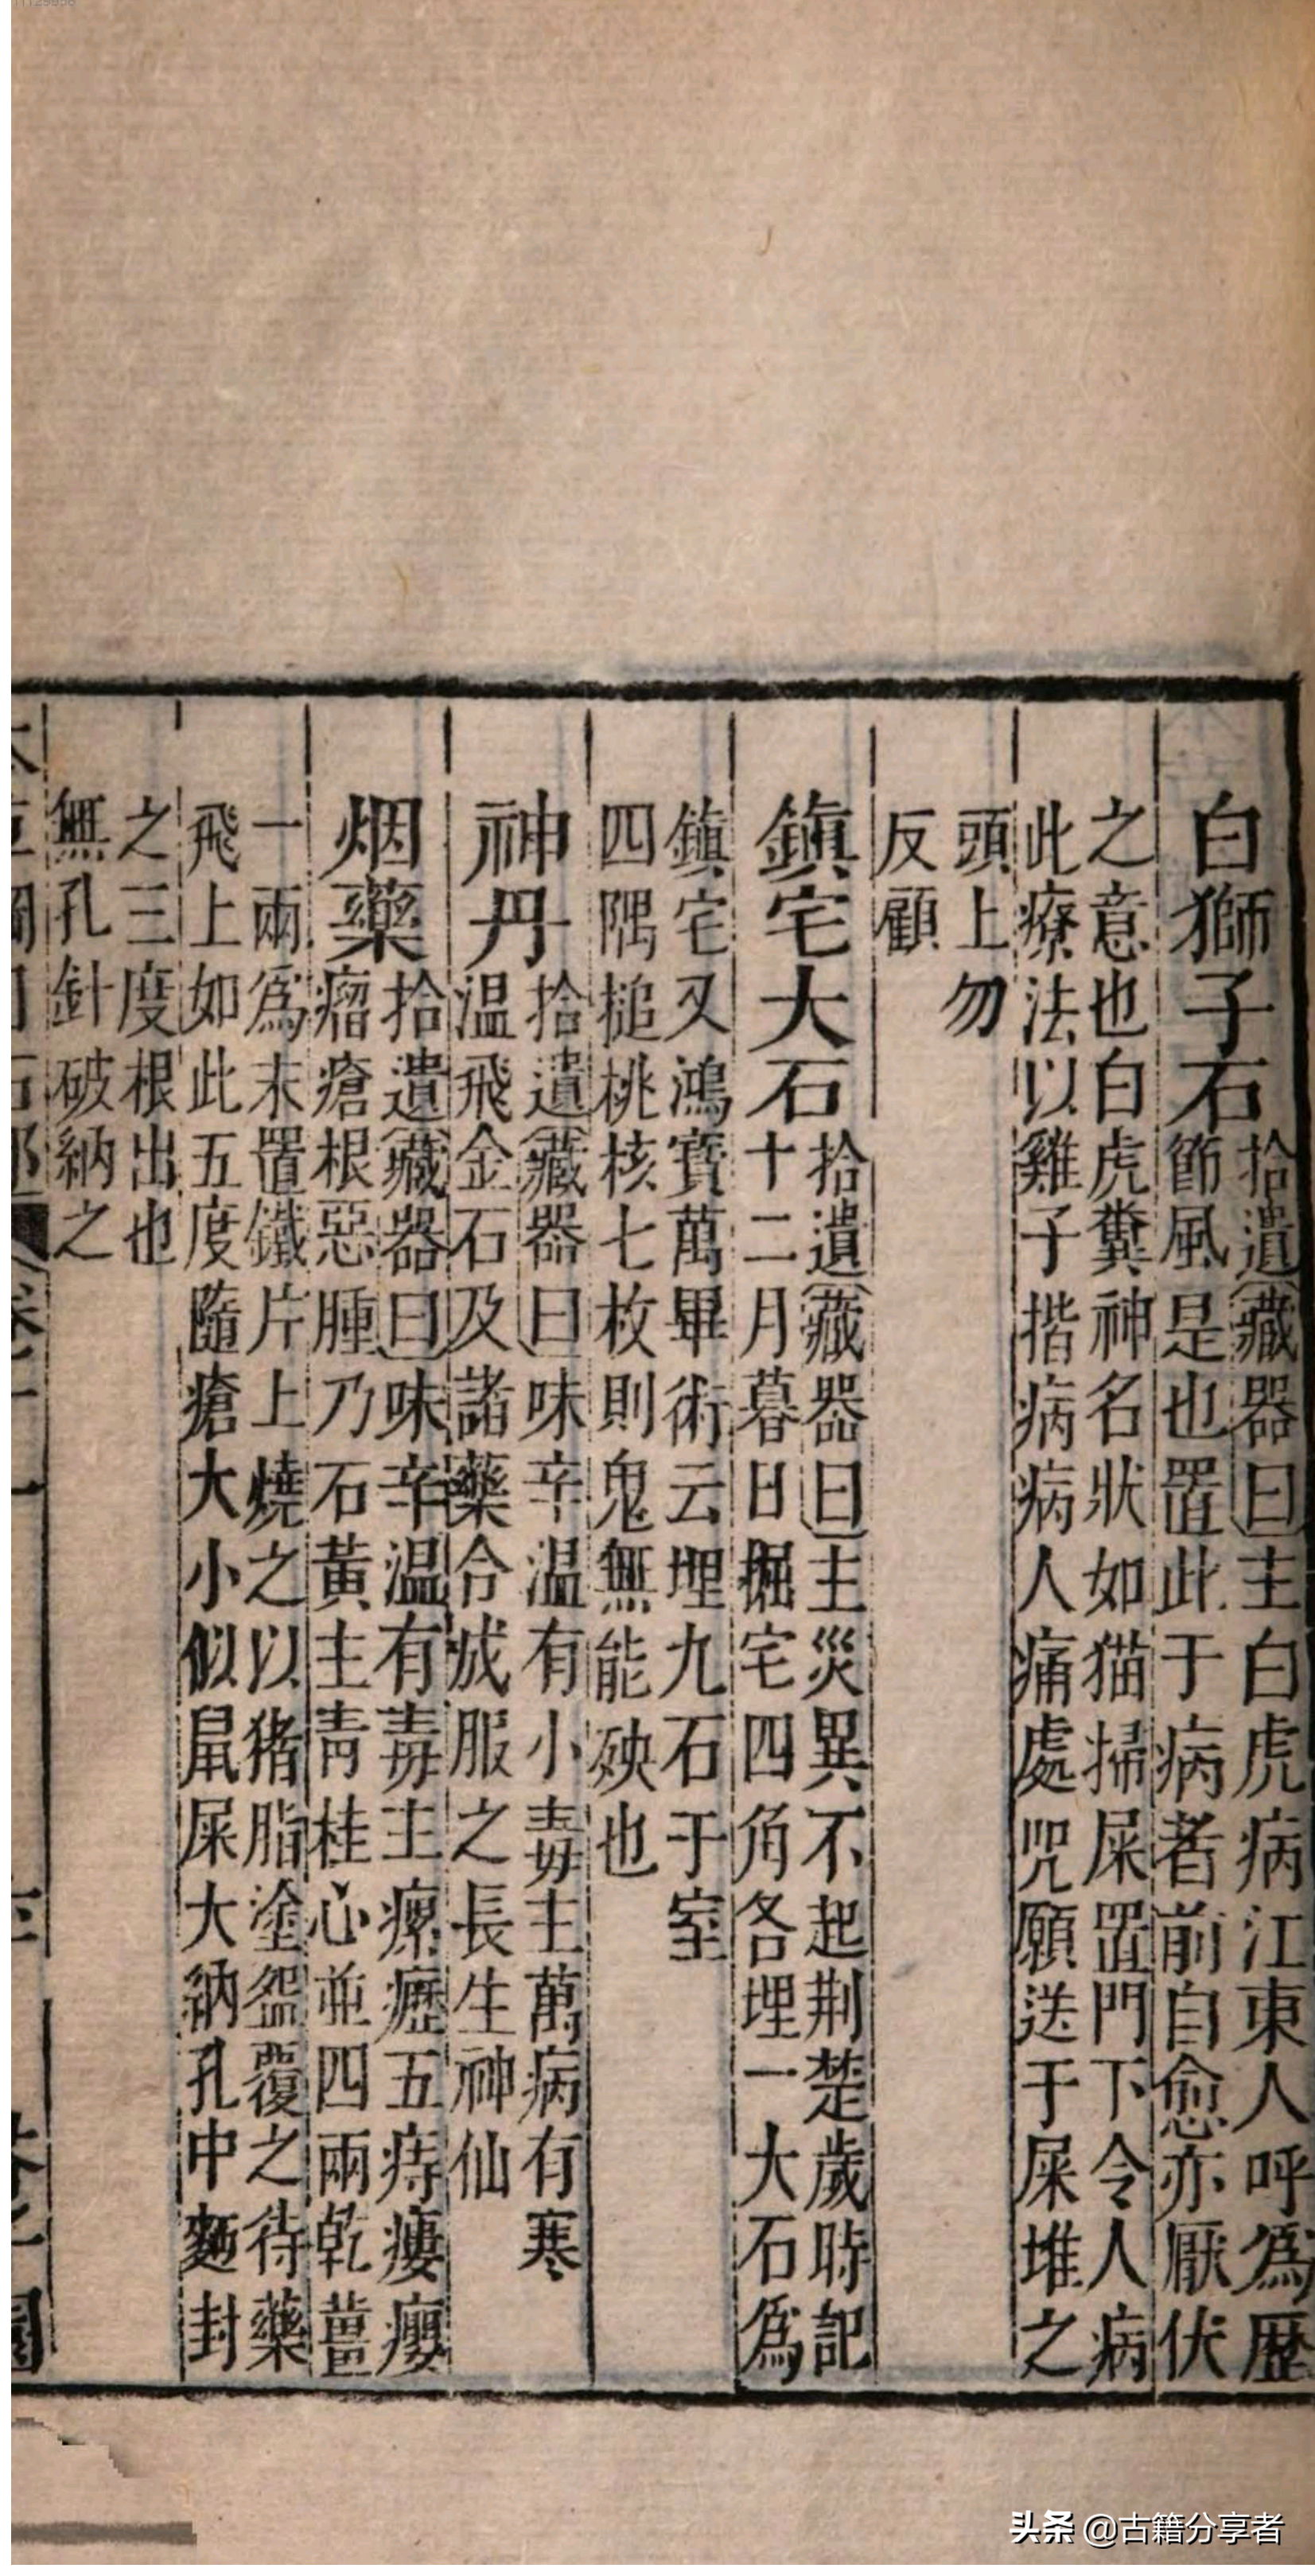 白獅子石
拾遺藏器曰主白虎病江東人呼爲歷
節風是也置此于病者前自愈亦厭伏
之意也白虎糞神名狀如猫掃屎置門下令人病
此療法以雞子揩病病人痛處咒願送于屎堆之
頭上勿
反顧
鎮宅大石
拾遺藏器曰主災異不起荆楚歲時記
十二月暮日掘宅四角各埋一大石爲
鎮宅又鴻寶萬畢術云埋九石于室
四隅槌桃核七枚則鬼無能殃也
神丹
拾遺藏器曰味辛温有小毒主萬病有寒
温飛金石及諸藥合成服之長生神仙
烟藥
拾遺藏器曰味辛温有毒主瘰癧五痔瘻癭
瘤瘡根惡腫乃石黃主靑桂心並四兩乾薑
一兩爲末置鐵片上燒之以猪脂塗盌覆之待藥
飛上如此五度隨瘡大小似鼠屎大納孔中麵封
之三度根出也
無孔針破納之
头条 @古籍分享者